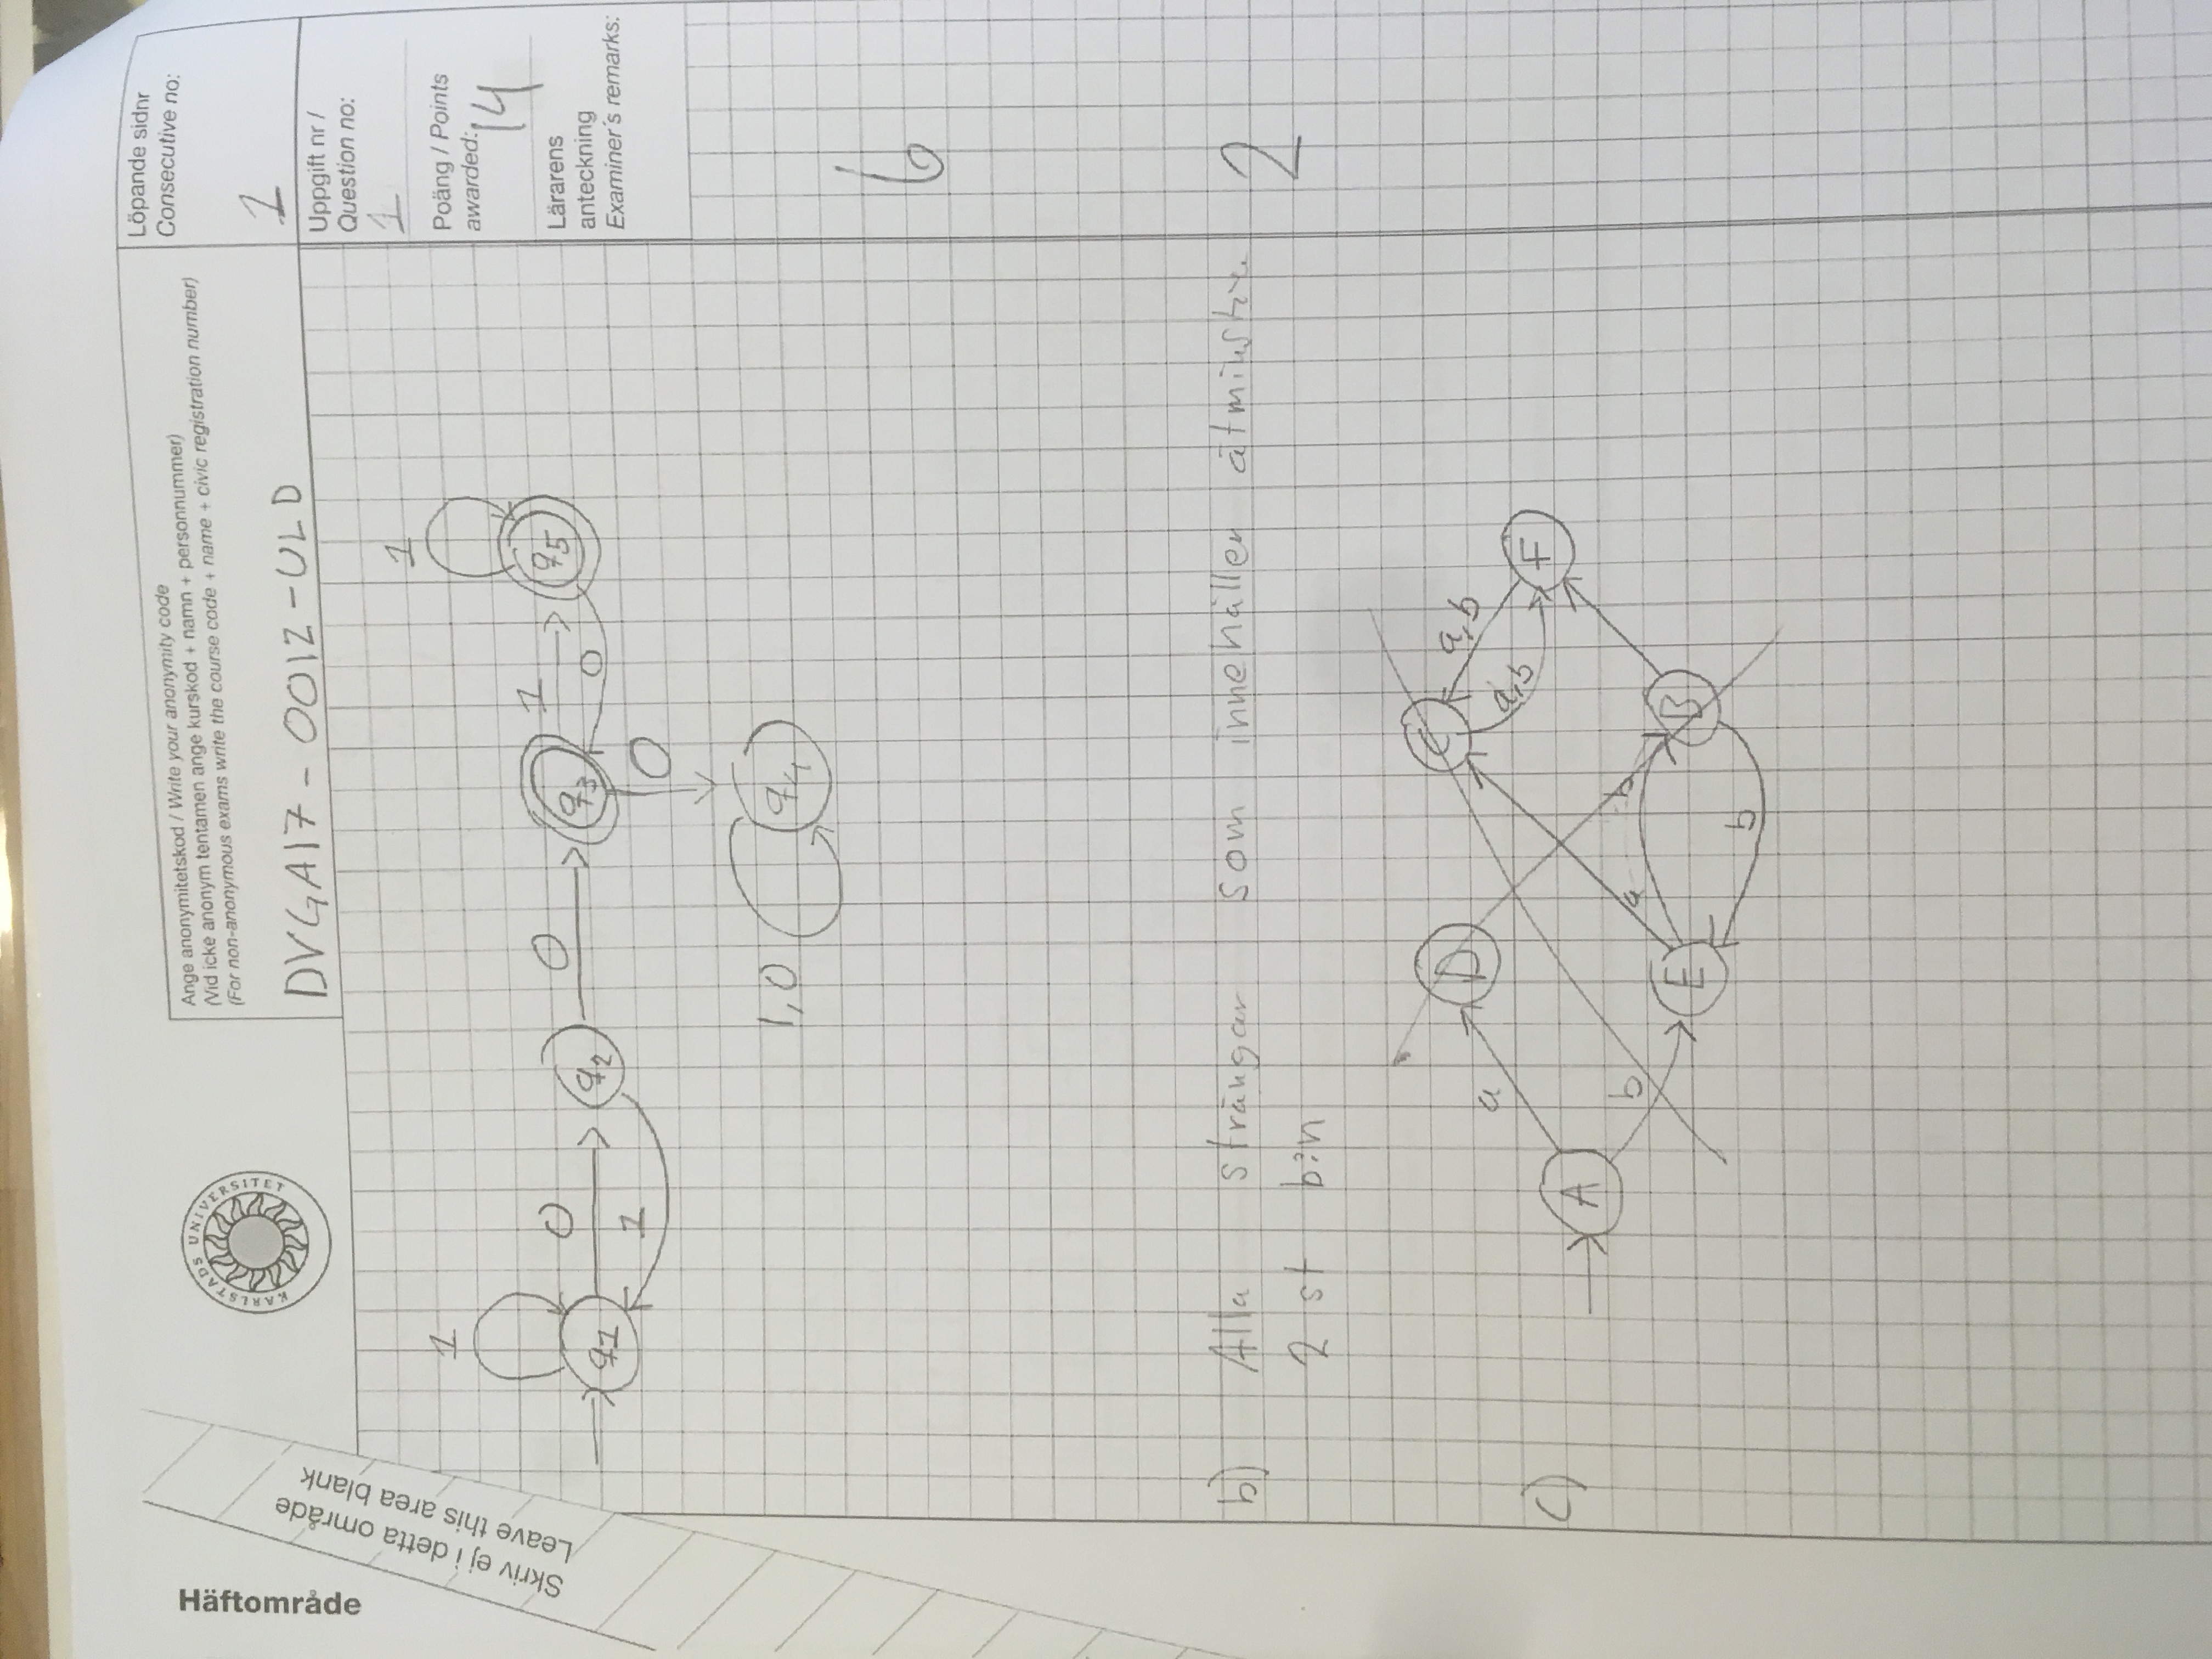 Häftområde
Skriv ej i detta område
Leave this area blank
KARLSTADS UNIVERSITET
Ange anonymitetskod / Write your anonymity code
(Vid icke anonym tentamen ange kurskod + namn + personnummer)
(For non-anonymous exams write the course code + name + civic registration number)
DVGA17-0012-ULD
Löpande sidnr
Consecutive no:
1
Uppgift nr /
Question no:
1
Poäng / Points
awarded:
14
Lärarens
anteckning
Examiner's remarks:
1
1
0
0
1
q1
q2
q3
q5
1
0
0
1,0
q4
6
b) Alla strängar som innehåller åtminstone
2
2 st b:n
c)
D
C
a
a,b
a,b
A
F
b
a
b
E
B
b